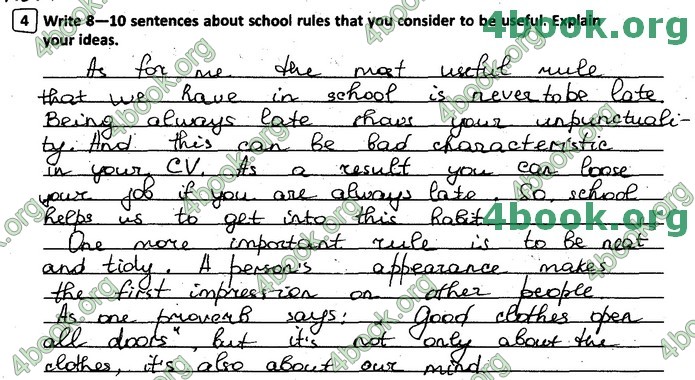 4 Write 8—10 sentences about school rules that you consider to be useful. Explain
your ideas.
4book.org
As for me the most useful rule
that we have in school is never to be late.
Being always late shows your unpunctuali-
ty. And this can be bad characteristic
in your CV. As a result you can loose
your job if you are always late. So, school
helps us to get into this habit.
4book.org
One more important rule is to be neat
and tidy. A person's appearance makes
the first impression on other people
As one proverb says: Good clothes open
all doors", but it's not only about the
clothes, it's also about our mind